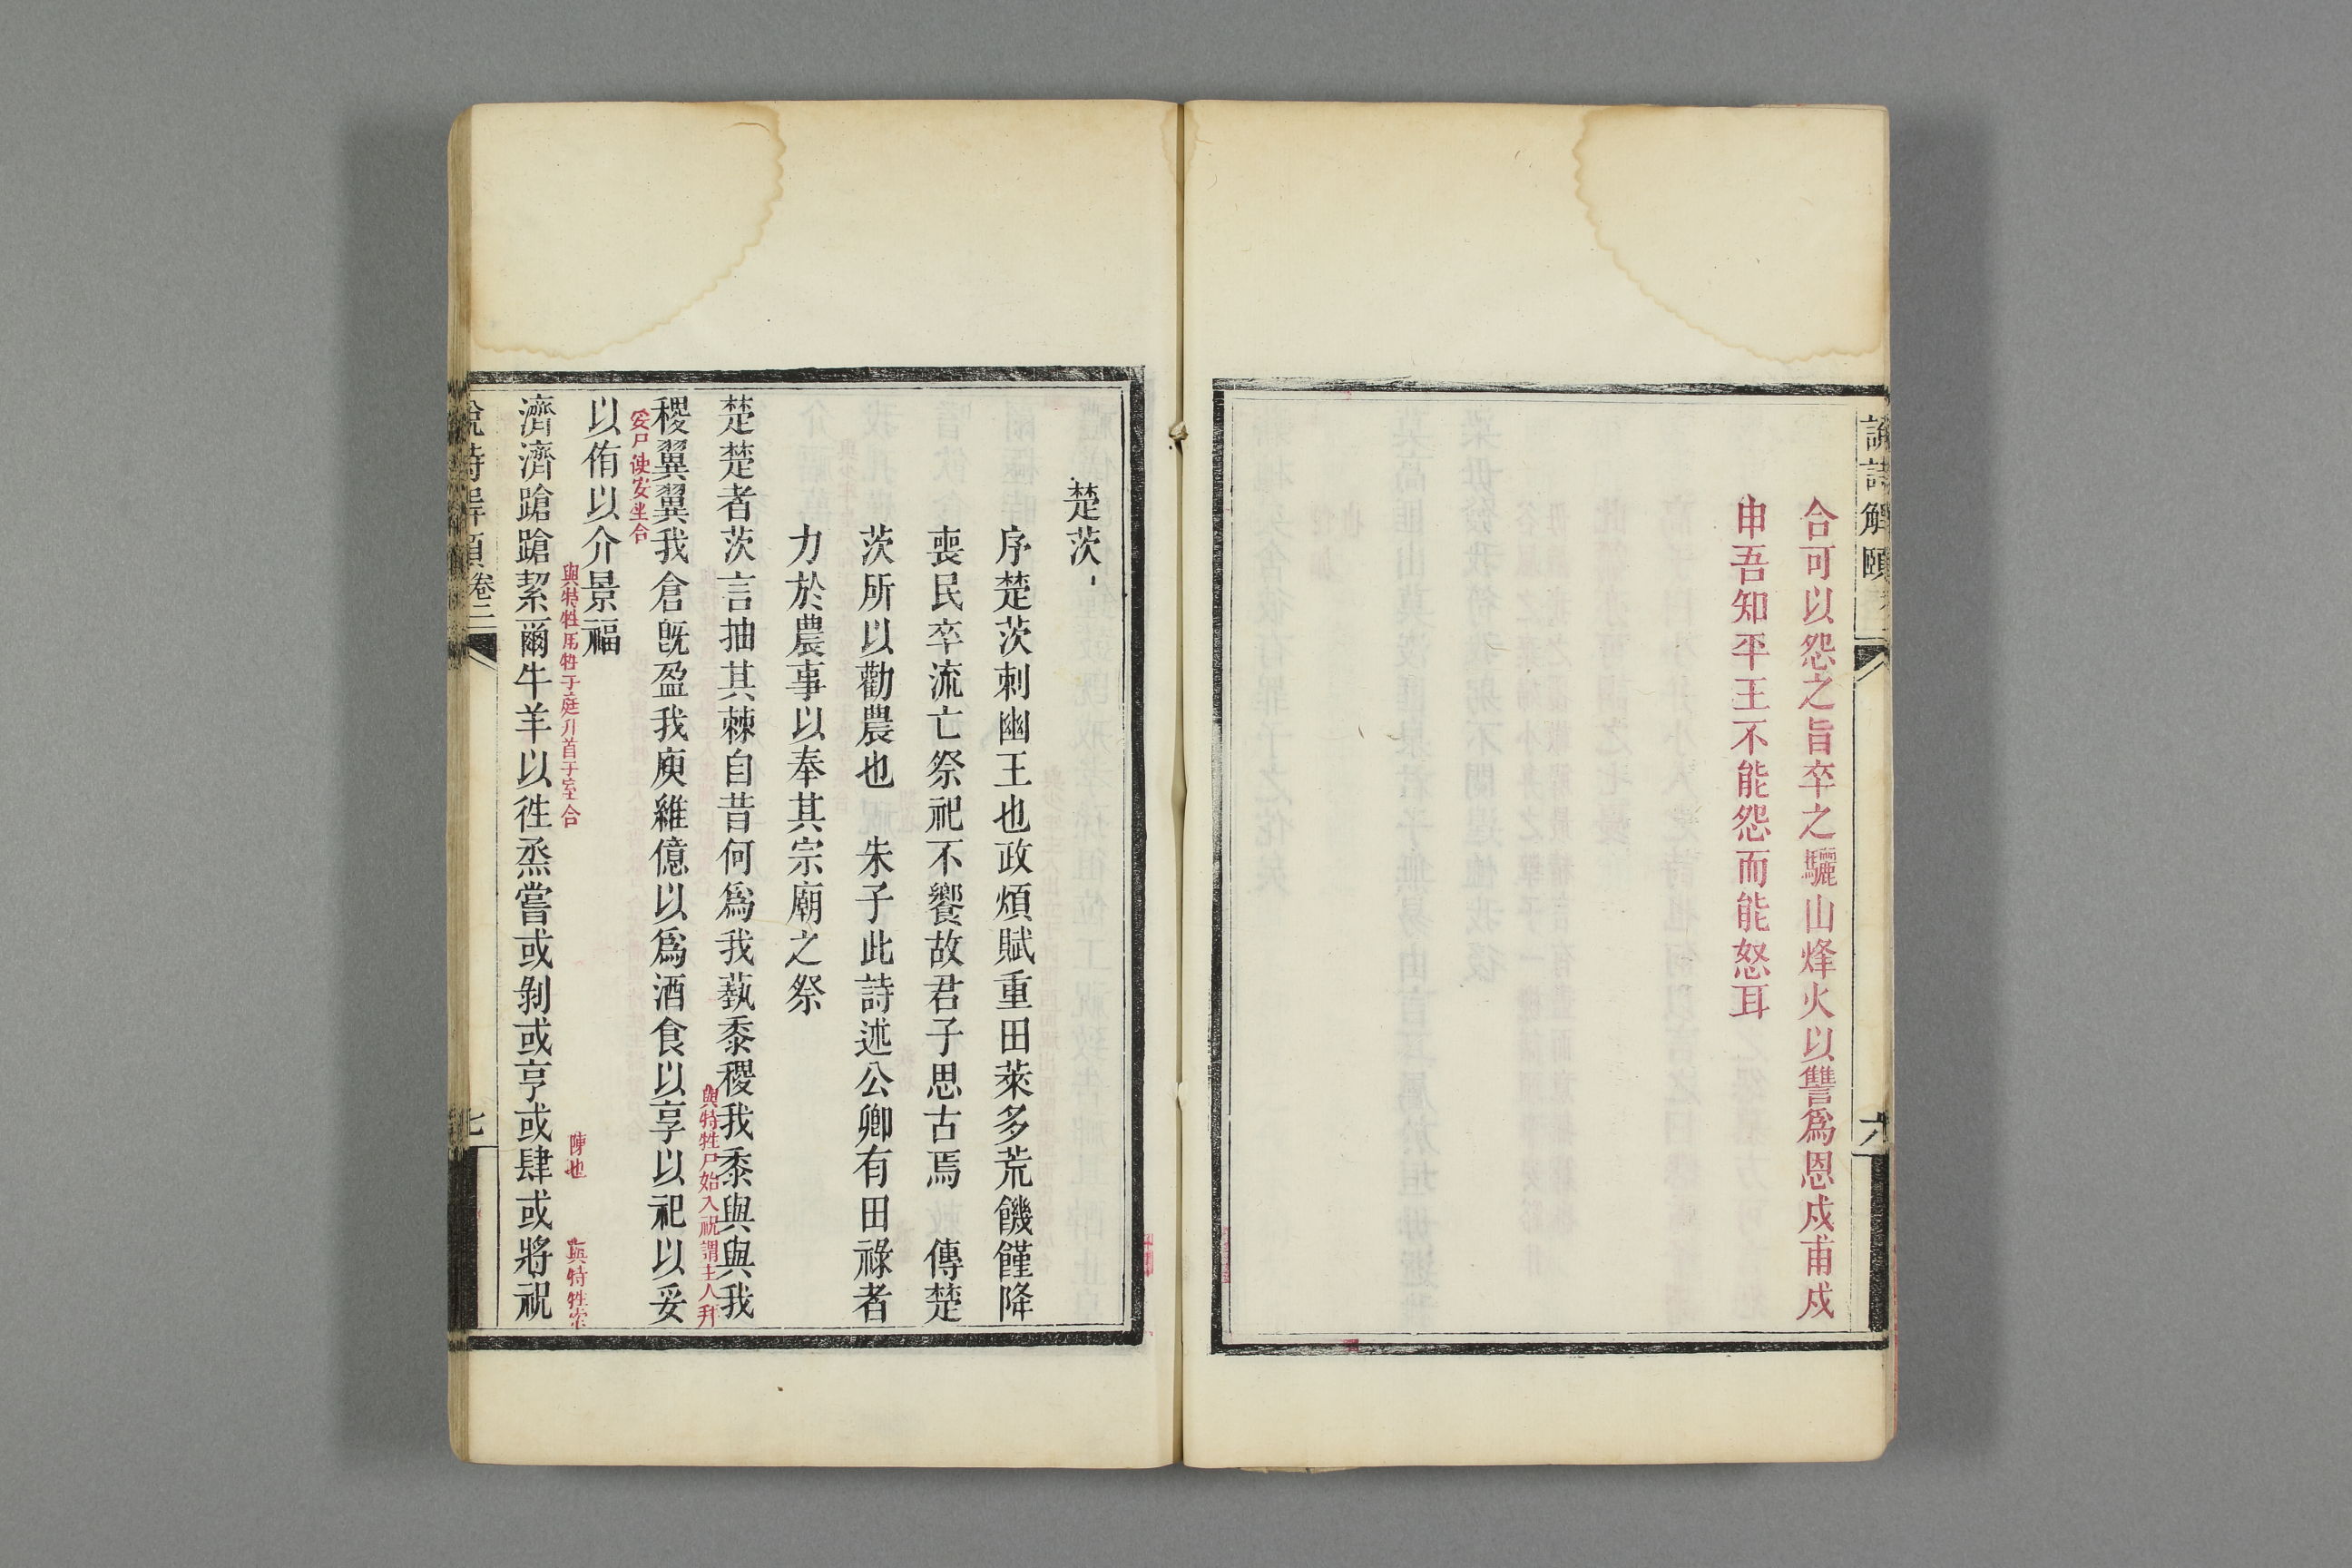 說詩解頤
六
合可以怨之旨卒之驪山烽火以讐爲恩戍甫戍
申吾知平王不能怨而能怒耳
楚茨
序楚茨刺幽王也政煩賦重田萊多荒饑饉降
喪民卒流亡祭祀不饗故君子思古焉　傳楚
茨所以勸農也　朱子此詩述公卿有田祿者
力於農事以奉其宗廟之祭
楚楚者茨言抽其棘自昔何爲我蓺黍稷我黍與與我
與特牲尸始入祝謂主人拜
稷翼翼我倉旣盈我庾維億以爲酒食以享以祀以妥
妥尸使安坐合
以侑以介景福
與特牲用牲于庭升首于室合
陳也
與特牲索
濟濟蹌蹌絜爾牛羊以徃烝嘗或剝或亨或肆或將祝
說詩解頤
卷二
七